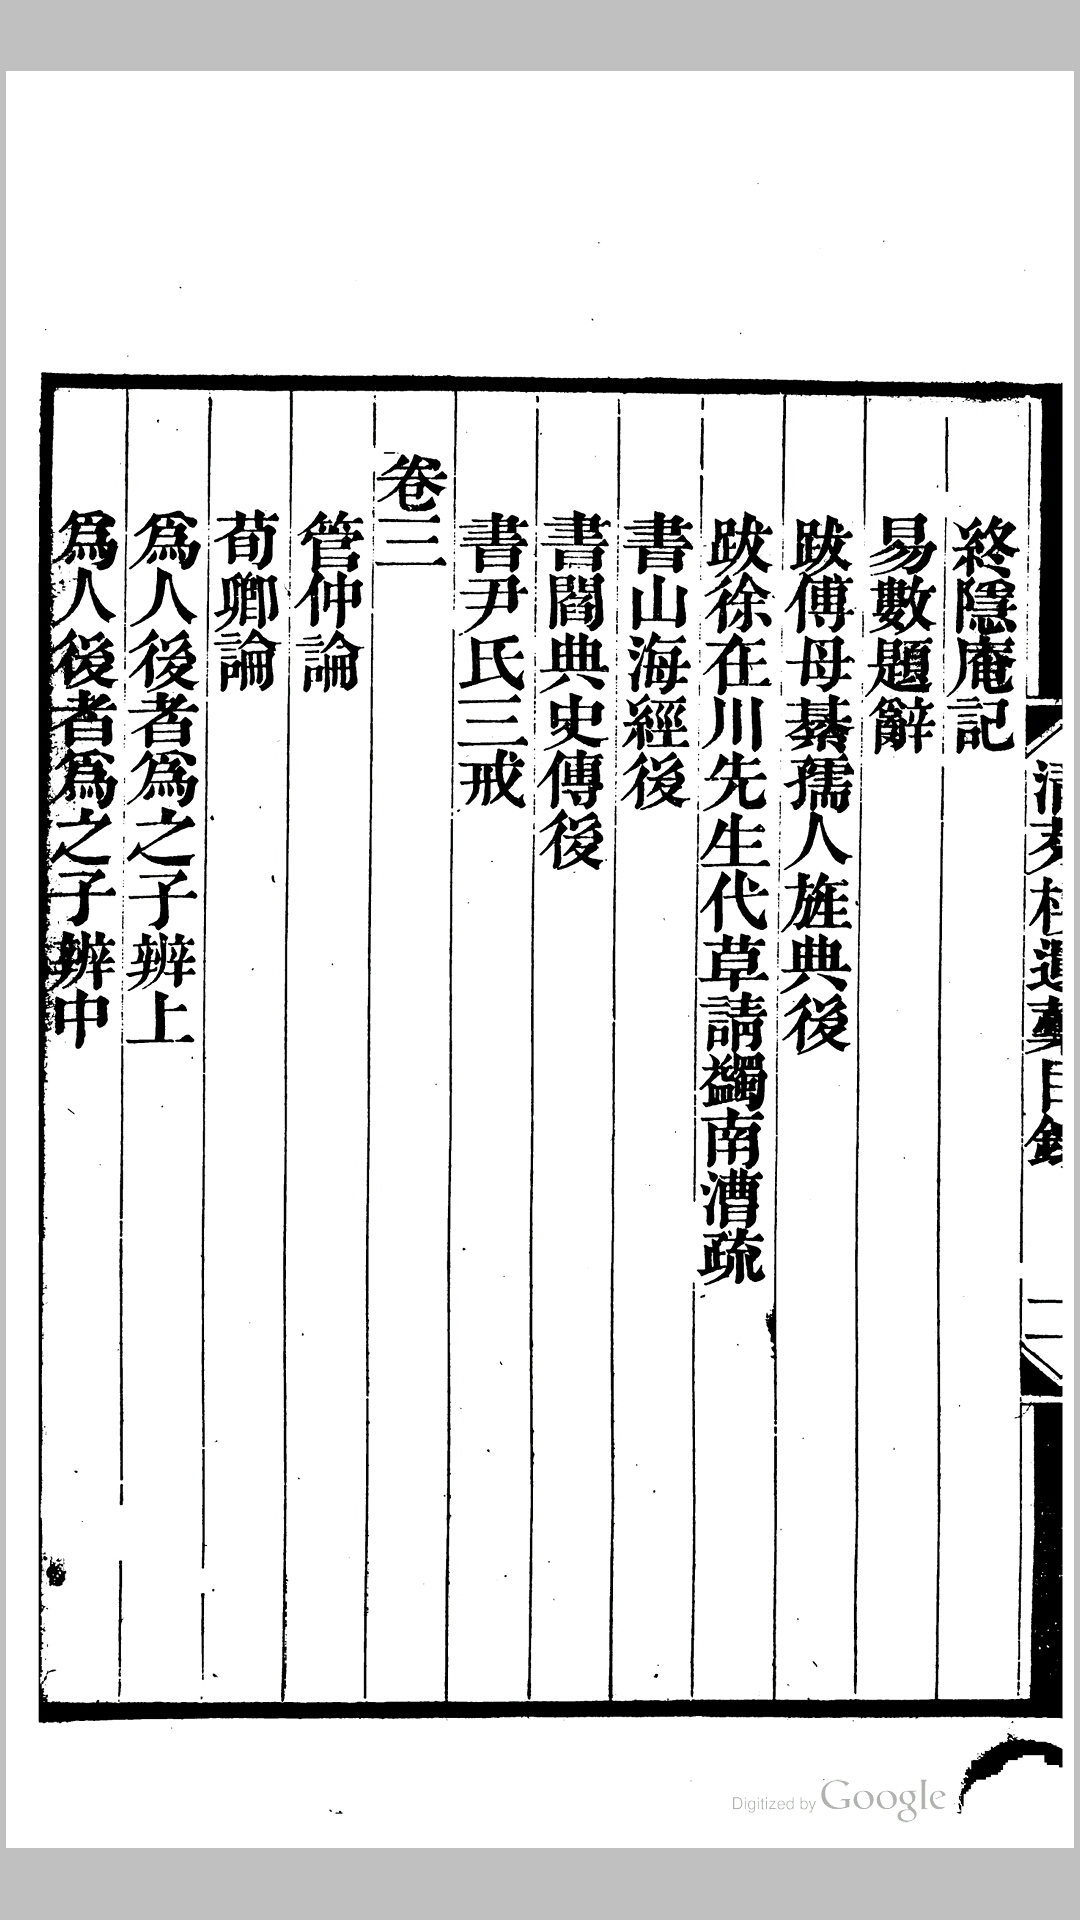 終隱庵記
易數題辭
跋傅母綦孺人旌典後
跋徐在川先生代草請蠲南漕疏
書山海經後
書閻典史傳後
書尹氏三戒
卷三
管仲論
荀卿論
爲人後者爲之子辨上
爲人後者爲之子辨中
目錄
二
Digitized by Google